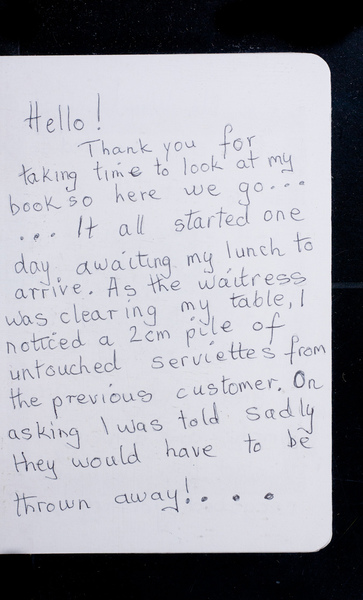 Hello!
Thank you for
taking time to look at my
book so here we go...
... It all started one
day, awaiting my lunch to
arrive. As the waitress
was clearing my table, I
noticed a 2cm pile of
untouched serviettes from
the previous customer. On
asking I was told sadly
they would have to be
thrown away!...